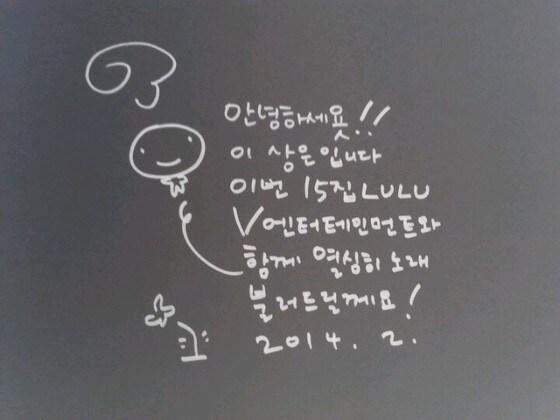 안녕하세요!!
이 상은입니다
이번 15집 LULU
V엔터테인먼트와
함께 열심히 노래
불러드릴께요!
2014. 2.